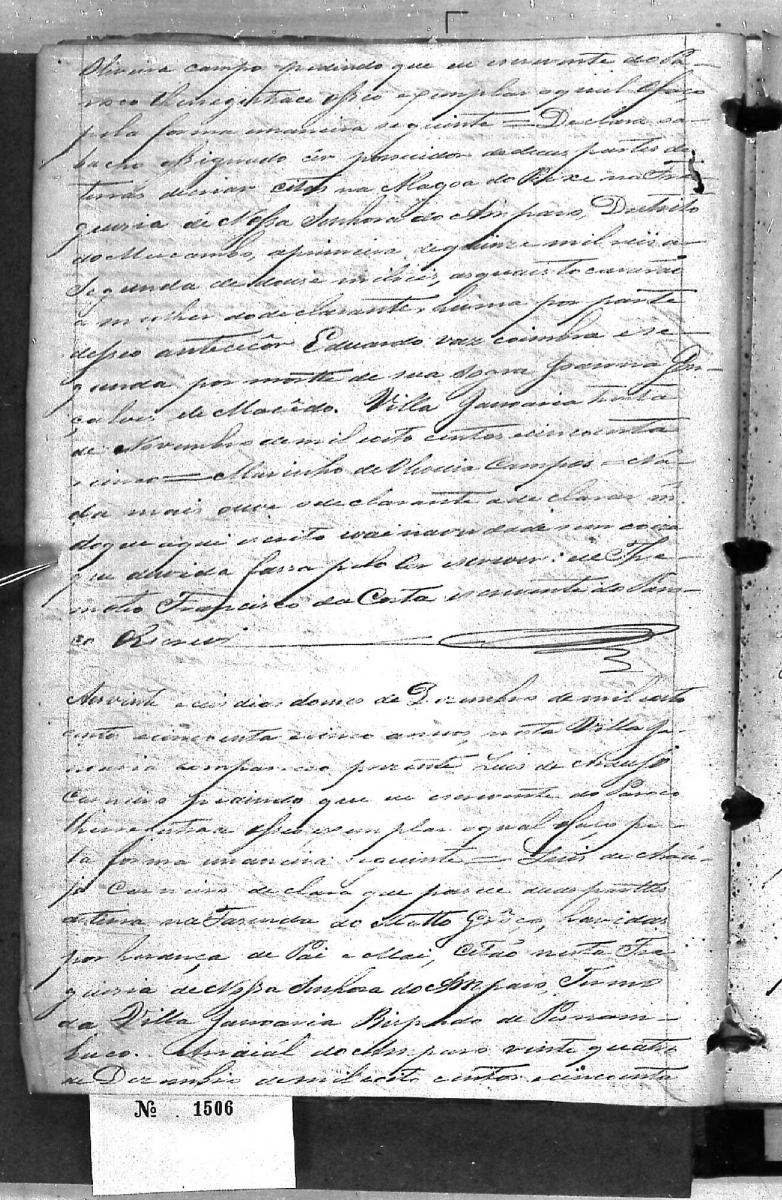 Oliveira campo pedindo que eu escrevente do Pa-
roco lhe registrace o seo exemplar o qual o faço
pela forma emaneira seguinte = Declara o
a baicho acignado cer possuidor de duas partes de
terras de criar citas na Alagoa do Peixe na Fre
guizia de Nossa Senhora do Amparo, Destrito
do Mocambo, aprimeira de quinze mil reis a
segunda de douze mil reis, as quais tocarão
a mulher do declarante, huma por parte
de seo antecêcor Eduardo vaz coimbra e se-
gunda por morte de sua sogra Joanna Gon
çalves de Macêdo. Villa Januaria trinta
de Novembro de mil eoito centos ecincoenta
e cinco = Marinho de Oliveira Campos = Na-
da mais ouve o declarante a declarar
do que aqui escrito vai na verdade sem coiza
que duvida fassa pelo ler escrever: eu The-
moteo Francisco da Costa escrevente do Paro-
co Escrevi
Aos vinte e ceis dias domes de Dezembro de mil eoito
centos ecincoenta ecinco annos, nesta Villa Ja-
nuaria compareceo prezente Luis de Araujo
Carneiro pedindo que eu escrevente do Paroco
lhe registrace o seo exemplar o qual o faço pe-
la forma emaneira seguinte = Luis de Arau-
jo Carneiro declara que possue duas parttes
de terra na Fazenda do Matto Groço, havidas
por herança de Pai e Mai, citas nesta Fre
guizia de Nossa Senhora do Amparo, Termo
da Villa Januaria Bispado de Pernam-
buco. Arraiál do Amparo vinte quatro
de Dezembro de mil eoito centos e cincoenta
Nº 1506